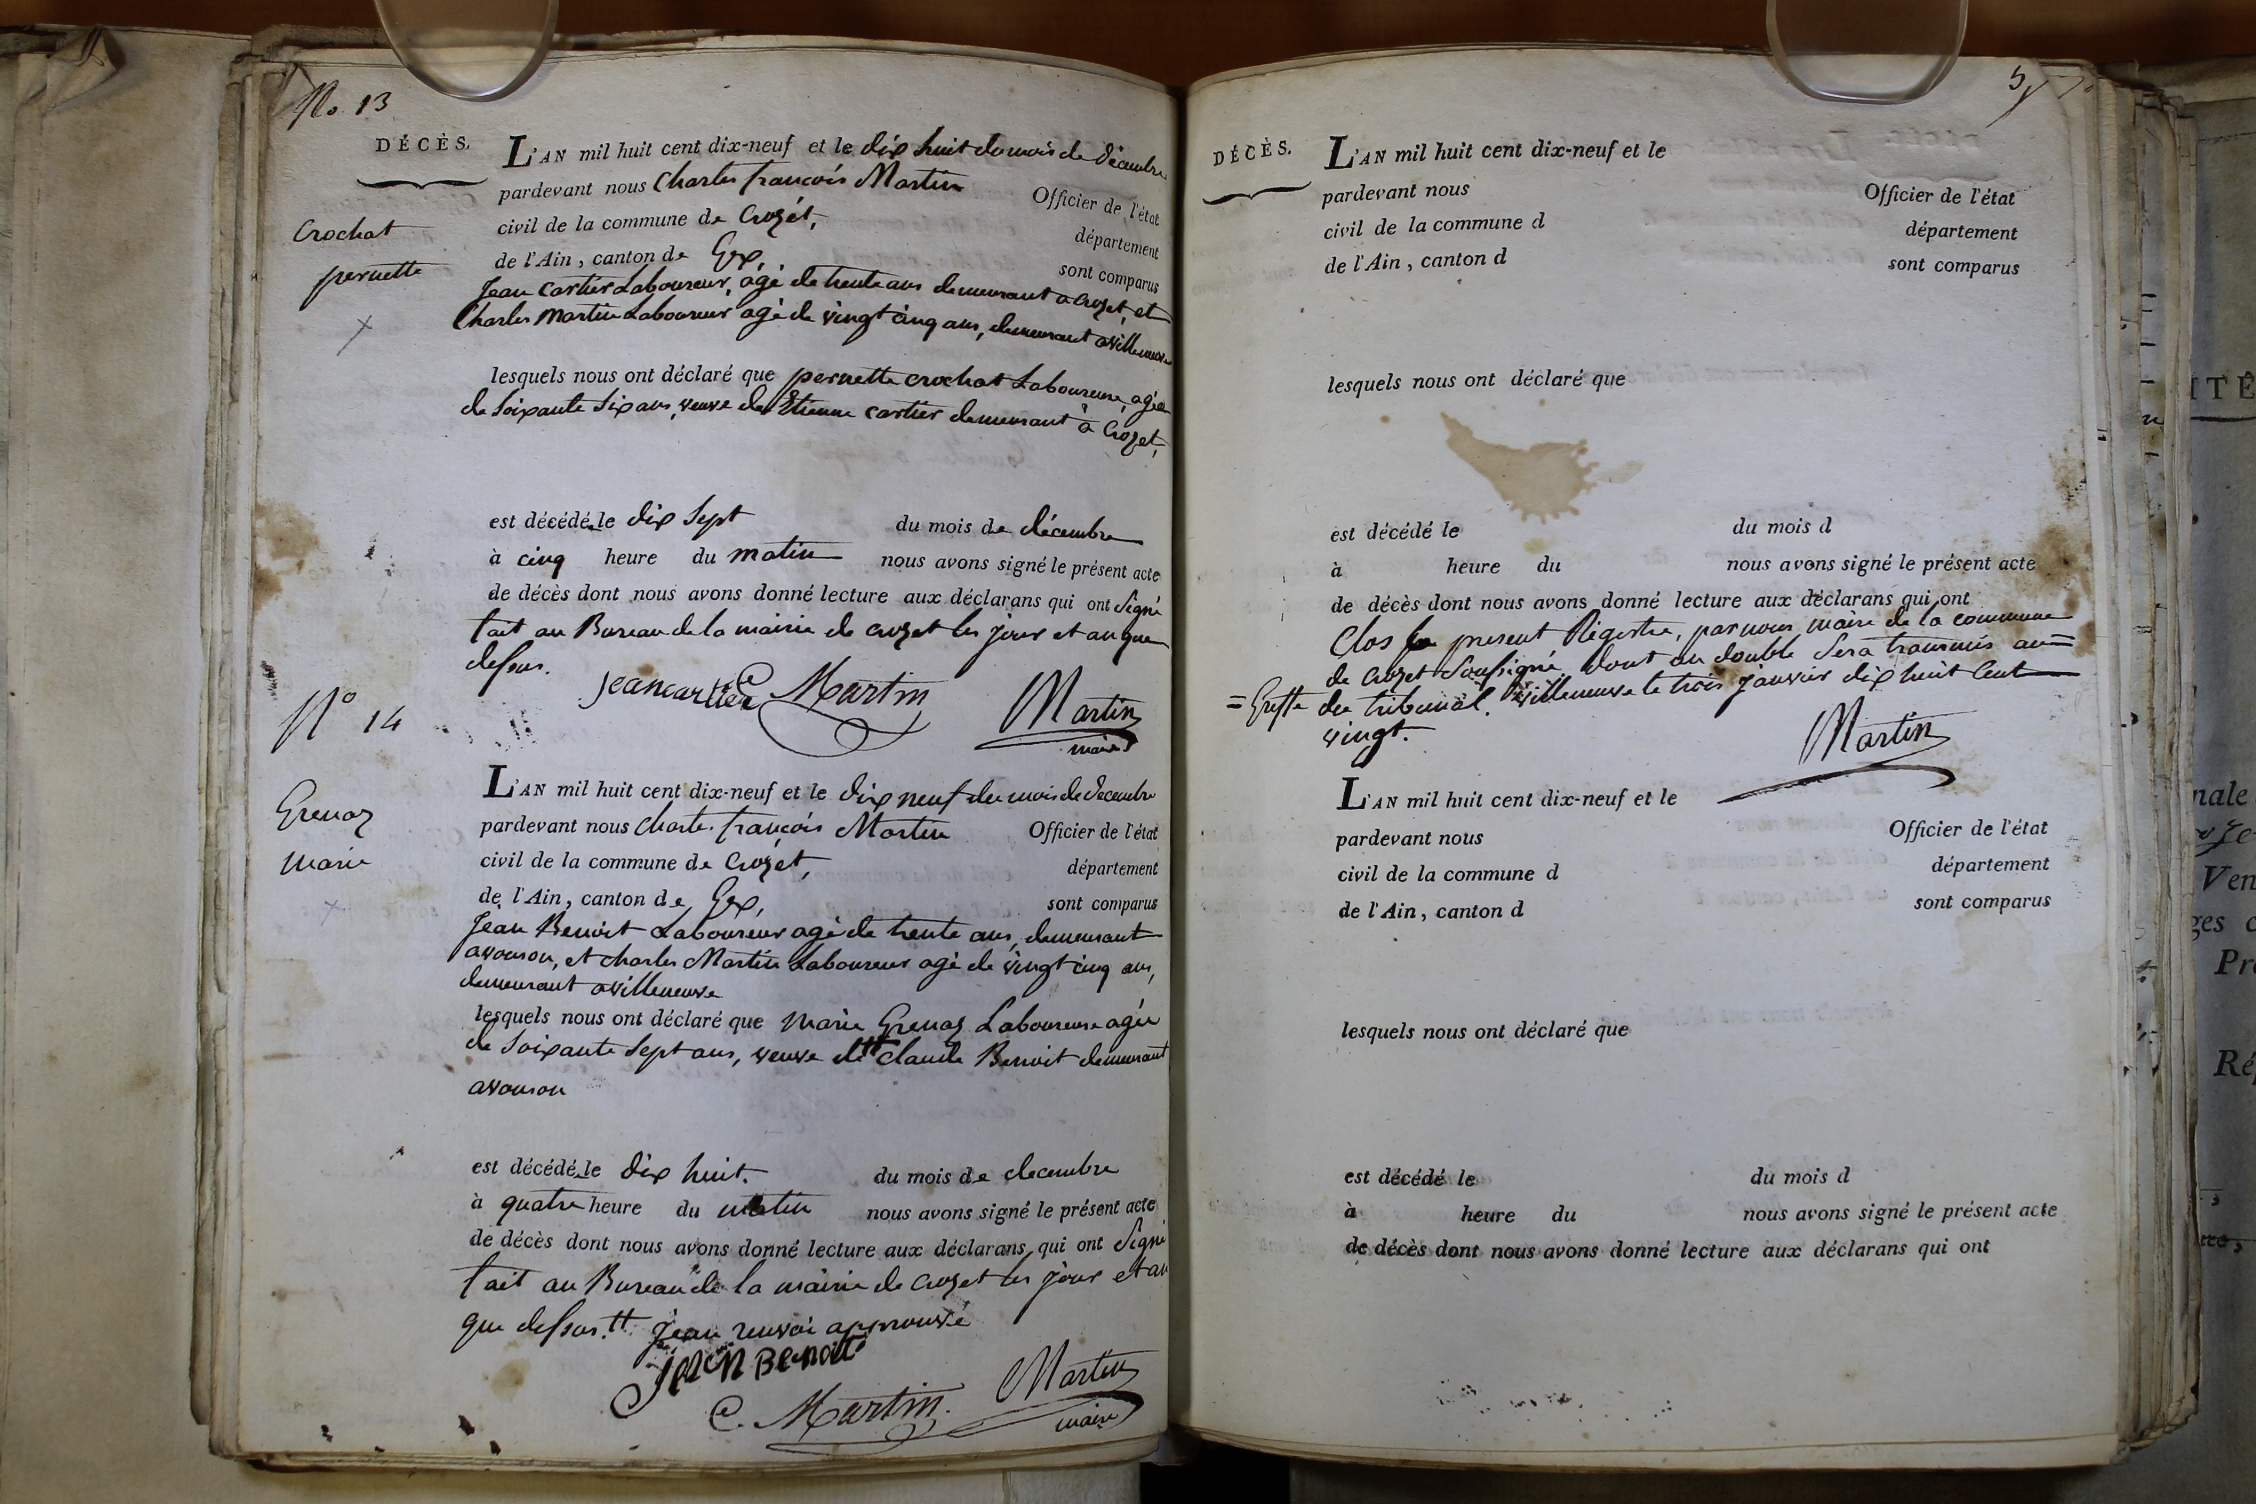 No. 13
DÉCÈS.
Crochat
pernette
L'AN mil huit cent dix-neuf et le dix huit du mois de décembre
pardevant nous Charles françois Martin Officier de l'état
civil de la commune de Crozét, département
de l'Ain, canton de Gex, sont comparus
Jean Cartier Laboureur, agé de trente ans demeurant a Crozet, et
Charles Martin Laboureur agé de vingt cinq ans, demeurant a villeneuve
lesquels nous ont déclaré que pernette crochat Laboureuse, agée
de Soixante Six ans, veuve de Etienne cartier demeurant à Crozet,
est décédée le dix Sept du mois de décembre
à cinq heure du matin nous avons signé le présent acte
de décès dont nous avons donné lecture aux déclarans qui ont Signé
fait au Bureau de la mairie de crozet les jour et an que
dessus.
Jean cartier C Martin Martin
maire
N° 14
Grenaz
Marie
L'AN mil huit cent dix-neuf et le dix neuf du mois de décembre
pardevant nous Charles françois Martin Officier de l'état
civil de la commune de Crozét, département
de l'Ain, canton de Gex, sont comparus
Jean Benoit Laboureur agé de trente ans, demeurant
avouson, et charles Martin Laboureur agé de vingt cinq ans,
demeurant a villeneuve
lesquels nous ont déclaré que Marie Grenaz Laboureuse agée
de Soixante Sept ans, veuve de # claude Benoit demeurant
avouson
est décédée le dix huit. du mois de decembre
à quatre heure du matin nous avons signé le présent acte
de décès dont nous avons donné lecture aux déclarans qui ont Signé
fait au Bureau de la mairie de crozet les jour et an
que dessus. # jean renvoi approuvé
Jean Benoit
C. Martin Martin
maire
DÉCÈS.
L'AN mil huit cent dix-neuf et le
pardevant nous Officier de l'état
civil de la commune d département
de l'Ain, canton d sont comparus
lesquels nous ont déclaré que
est décédé le du mois d
à heure du nous avons signé le présent acte
de décès dont nous avons donné lecture aux déclarans qui ont
Clos le present Registre, par nous maire de la commune
de crozet Soussigné, dont un double Sera transmis au=
=Greffe du tribunal. villeneuve le trois janvier dix huit Cent
vingt.
Martin
L'AN mil huit cent dix-neuf et le
pardevant nous Officier de l'état
civil de la commune d département
de l'Ain, canton d sont comparus
lesquels nous ont déclaré que
est décédé le du mois d
à heure du nous avons signé le présent acte
de décès dont nous avons donné lecture aux déclarans qui ont